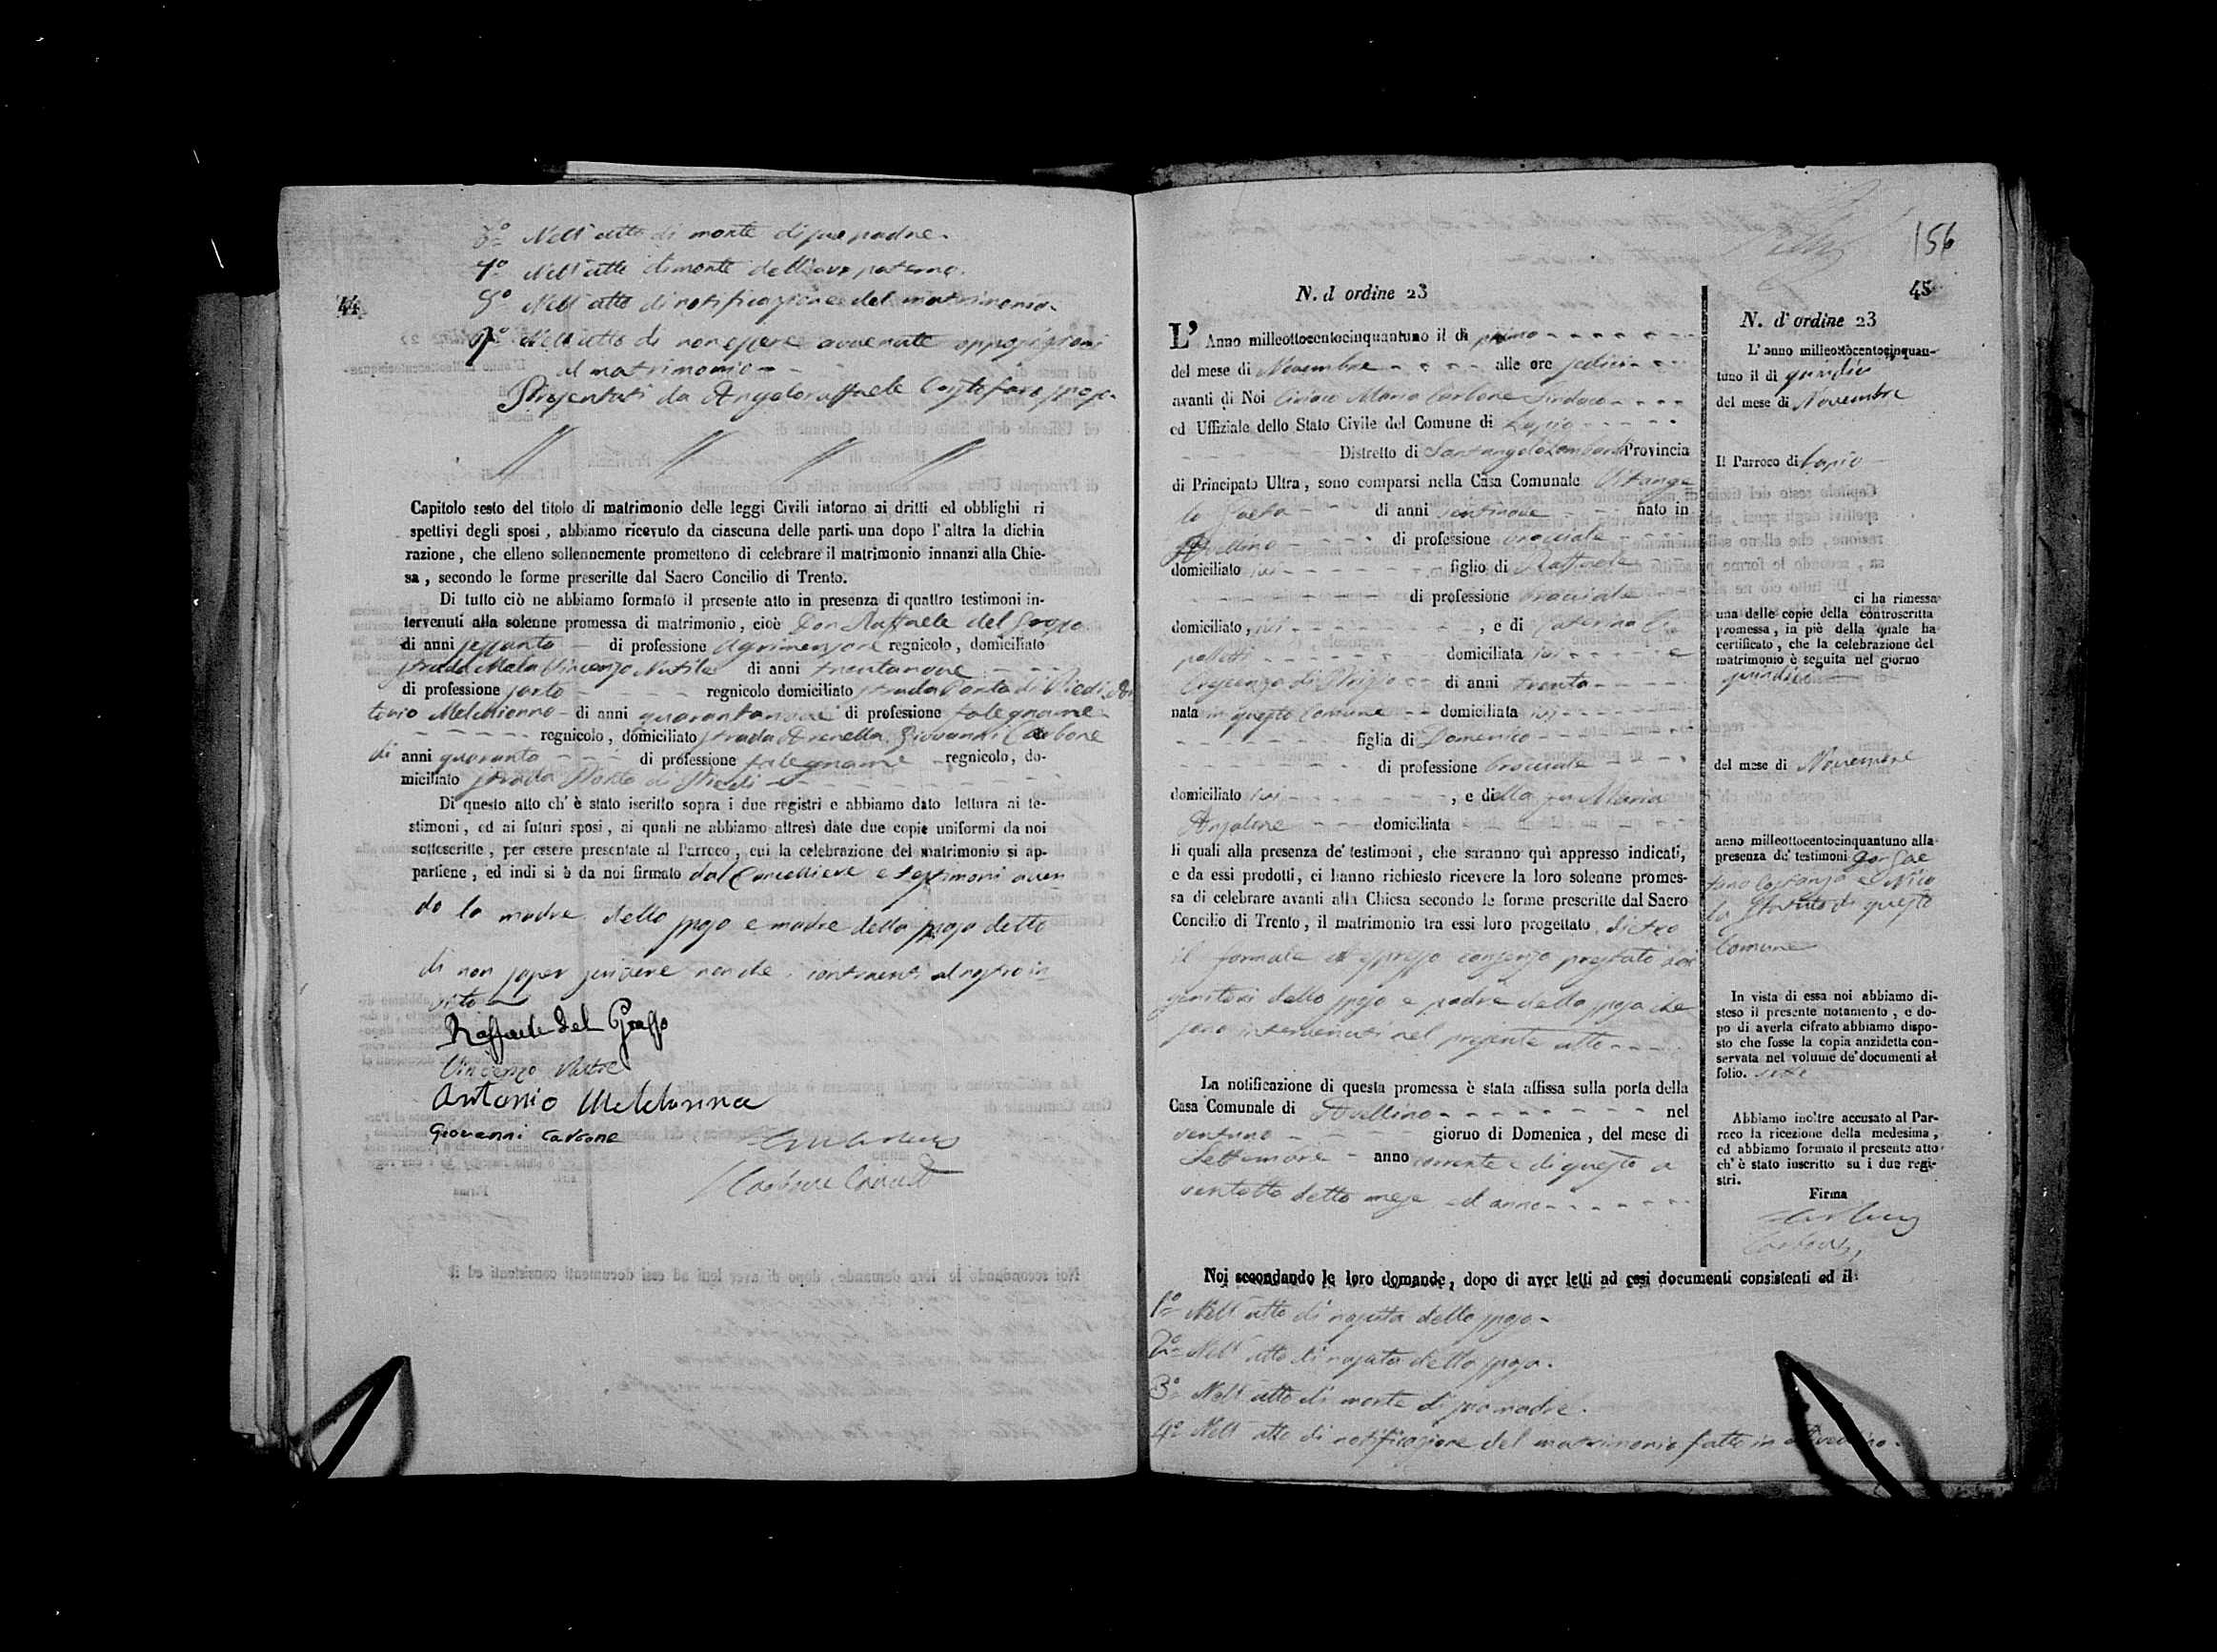 3º Nell'atto di morte di suo padre.
4º Nell'atto di morte dell'avo paterno.
5º Nell'atto di notificazione del matrimonio.
Nell'atto di non essere avvenute opposizioni
al matrimonio
Presentati da Angeloraffaele
44
Capitolo sesto del titolo di matrimonio delle leggi Civili intorno ai dritti ed obblighi ri
spettivi degli sposi, abbiamo ricevuto da ciascuna delle parti una dopo l'altra la dichia
razione, che elleno sollennemente promettono di celebrare il matrimonio innanzi alla Chie-
sa, secondo le forme prescritte dal Sacro Concilio di Trento.
Di tutto ciò ne abbiamo formato il presente atto in presenza di quattro testimoni in-
tervenuti alla solenne promessa di matrimonio, cioè Don Raffaele del Grosso
di anni sessanta di professione Agrimensore regnicolo, domiciliato
strada Mala Vincenzo di anni trentanove
di professione sarto regnicolo domiciliato strada Porta di Piedi An
tonio Melchionno di anni quarantanove di professione falegname
regnicolo, domiciliato strada Arenella, Giovanni Carbone
di anni quaranta di professione falegname regnicolo, do-
miciliato strada Porta di Piedi
Di questo atto ch'è stato iscritto sopra i due registri e abbiamo dato lettura ai te-
stimoni, ed ai futuri sposi, ai quali ne abbiamo altresì date due copie uniformi da noi
sottoscritte, per essere presentate al Parroco, cui la celebrazione del matrimonio si ap-
partiene, ed indi si è da noi firmato dal Cancelliere e testimoni aven
do la madre dello sposo e madre della sposa detto
di non saper scrivere non che i contraenti al nostro in
vito
Raffaele del Grosso
Vincenzo
Antonio Melchionna
Giovanni Carbone
156
45
N. d ordine 23
L'Anno milleottocentocinquantuno il dì primo
del mese di Novembre alle ore sedici
avanti di Noi Ciriaco Maria Carbone Sindaco
ed Uffiziale dello Stato Civile del Comune di Lapio
Distretto di Santangelo Lombardi Provincia
di Principato Ultra, sono comparsi nella Casa Comunale Vitange
lo Gaeta di anni ventinove nato in
Avellino di professione bracciale
domiciliato ivi figlio di Raffaele
di professione bracciale
domiciliato, ivi, e di Caterina
domiciliata ivi e
di anni trenta
nata in questo Comune domiciliata ivi
figlia di Domenico
di professione bracciale
domiciliato ivi, e della fu Maria
Anzalone domiciliata
li quali alla presenza de' testimoni, che saranno quì appresso indicati,
e da essi prodotti, ci hanno richiesto ricevere la loro solenne promes-
sa di celebrare avanti alla Chiesa secondo le forme prescritte dal Sacro
Concilio di Trento, il matrimonio tra essi loro progettato, dietro
il formale ed espresso consenso prestato dai
genitori dello sposo e padre della sposa che
sono intervenuti nel presente atto
La notificazione di questa promessa è stata affissa sulla porta della
Casa Comunale di Avellino nel
ventuno giorno di Domenica, del mese di
Settembre anno corrente e di questo a
ventotto detto mese ed anno
Noi secondando le loro domande, dopo di aver letti ad essi documenti consistenti ed il
1º Nell'atto di nascita dello sposo.
2º Nell'atto di nascita della sposa.
3º Nell'atto di morte di sua madre.
4º Nell'atto di notificazione del matrimonio fatto in Avellino.
N. d'ordine 23
L'anno milleottocentocinquan-
tuno il dì quindici
del mese di Novembre
Il Parroco di Lapio
ci ha rimessa
una delle copie della controscritta
promessa, in piè della quale ha
certificato, che la celebrazione del
matrimonio è seguita nel giorno
quindici
del mese di Novembre
anno milleottocentocinquantuno alla
presenza de' testimoni Don Gae
tano Costanza e Nico
la di questo
Comune
In vista di essa noi abbiamo di-
steso il presente notamento, e do-
po di averla cifrato abbiamo dispo-
sto che fosse la copia anzidetta con-
servata nel volume de' documenti al
folio.
Abbiamo inoltre accusato al Par-
roco la ricezione della medesima,
ed abbiamo formato il presente atto
ch'è stato inscritto su i due regi-
stri.
Firma